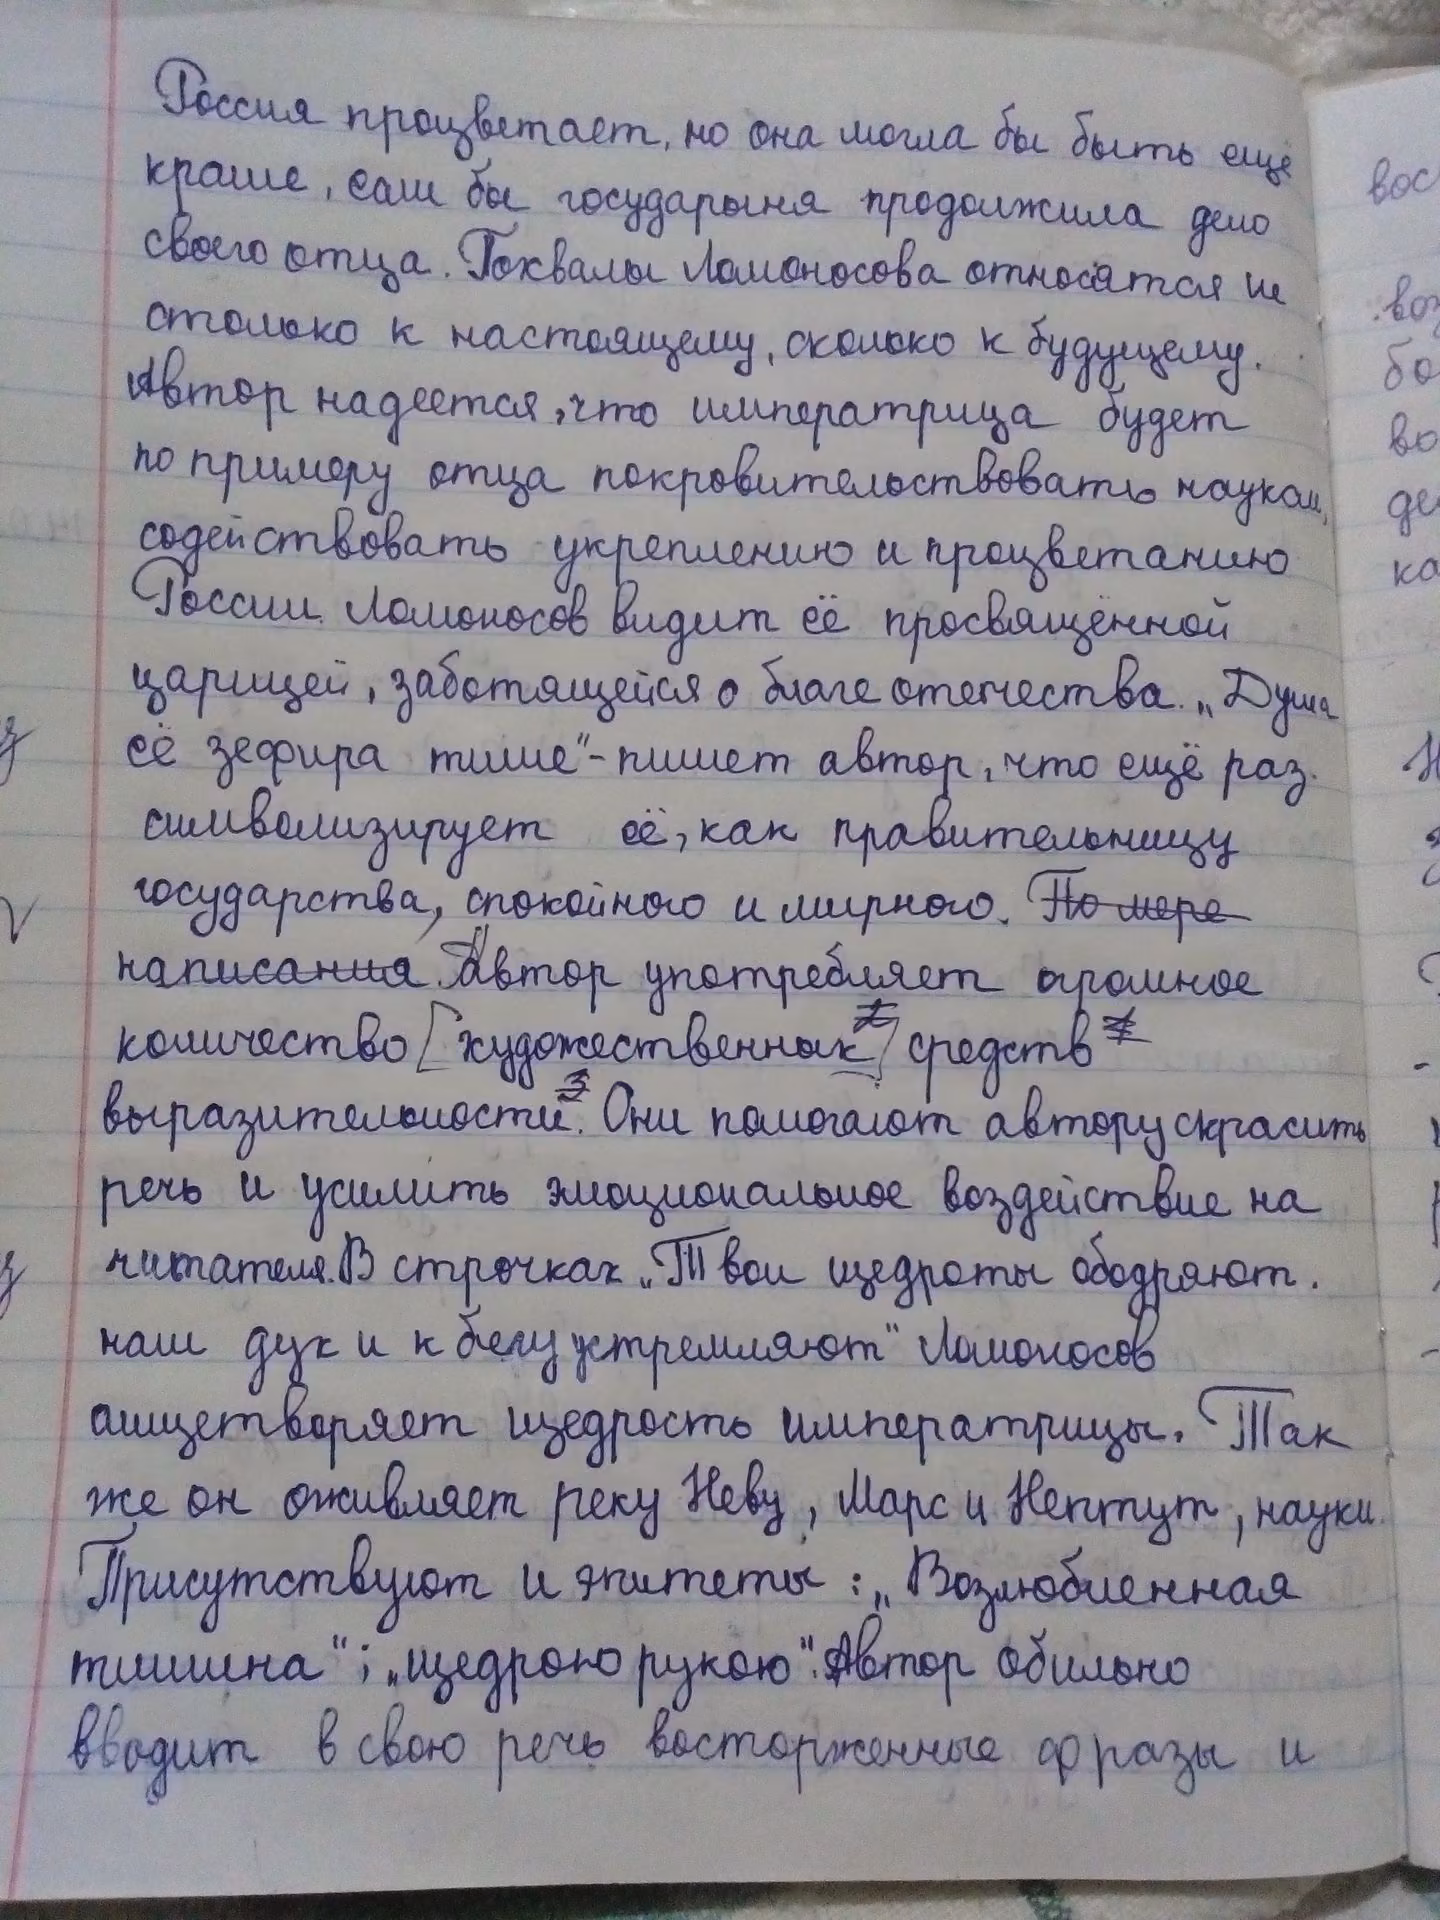 Россия процветает, но она могла бы быть ещё
краше, если бы государыня продолжила дело
своего отца. Похвалы Ломоносова относятся не
столько к настоящему, сколько к будущему.
Автор надеется, что императрица будет
по примеру отца покровительствовать наукам,
содействовать укреплению и процветанию
России. Ломоносов видит её просвящённой
царицей, заботящейся о благе отечества. „Душа
её зефира тише" - пишет автор, что ещё раз
символизирует её, как правительницу
государства, спокойного и мирного. По мере
написания Автор употребляет огромное
количество [художественных] средств
выразительности. Они помогают автору скрасить
речь и усилить эмоциональное воздействие на
читателя. В строчках „Твои щедроты ободряют
наш дух и к бегу устремляют" Ломоносов
олицетворяет щедрость императрицы. Так
же он оживляет реку Неву, Марс и Нептун, науки.
Присутствуют и эпитеты: „Возлюбленная
тишина"; „щедрою рукою". Автор обильно
вводит в свою речь восторженные фразы и